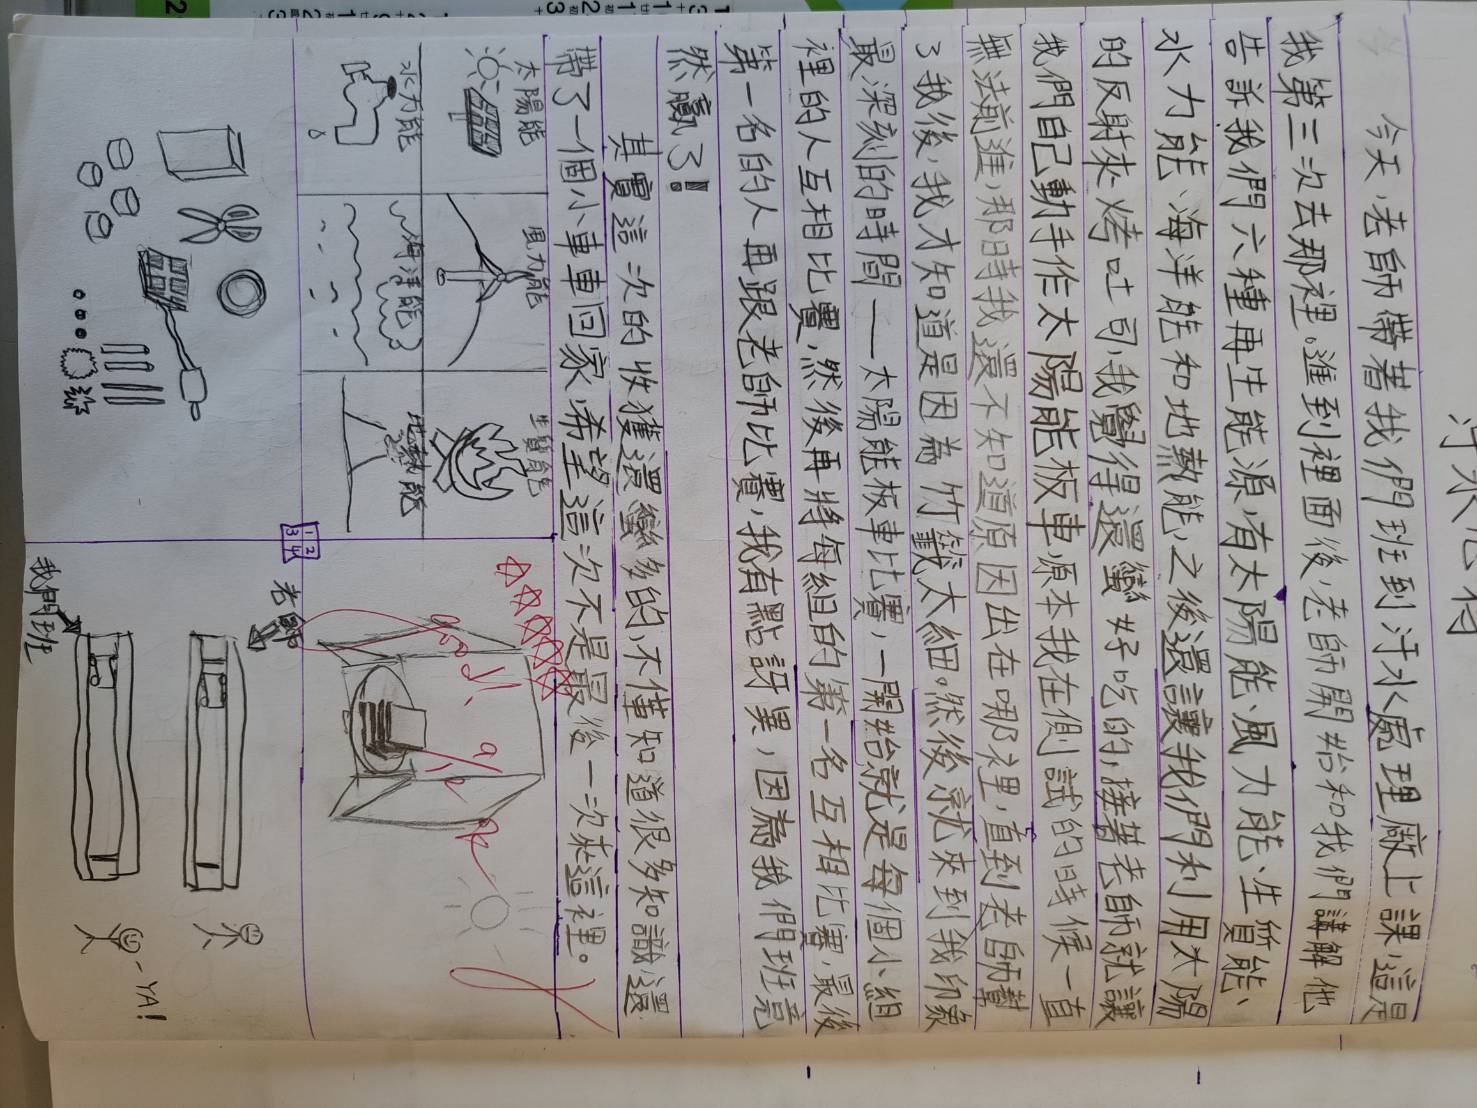 汙水心得
今天,老師帶著我們班到汙水處理廠上課,這是
我第三次去那裡。進到裡面後,老師開始和我們講解他
告訴我們六種再生能源,有太陽能、風力能、生質能、
水力能、海洋能和地熱能,之後還讓我們利用太陽
的反射來烤吐司,我覺得還蠻好吃的,接著老師就讓
我們自己動手作太陽能板車,原本我在側試的時候一直
無法前進,那時我還不知道原因出在哪裡,直到老師幫
了我後,我才知道是因為竹籤太細。然後就來到我印象
最深刻的時間——太陽能板車比賽,一開始就是每個小組
裡的人互相比賽,然後再將每組的第一名互相比賽,最後
第一名的人再跟老師比賽,我有點訝異,因為我們班竟
然贏了!
其實這次的收獲還蠻多的,不僅知道很多知識,還
帶了一個小車車回家,希望這次不是最後一次來這裡。
太陽能
風力能
生質能
水力能
海洋能
地熱能
1 2
3 4
老師
我們班
YA!